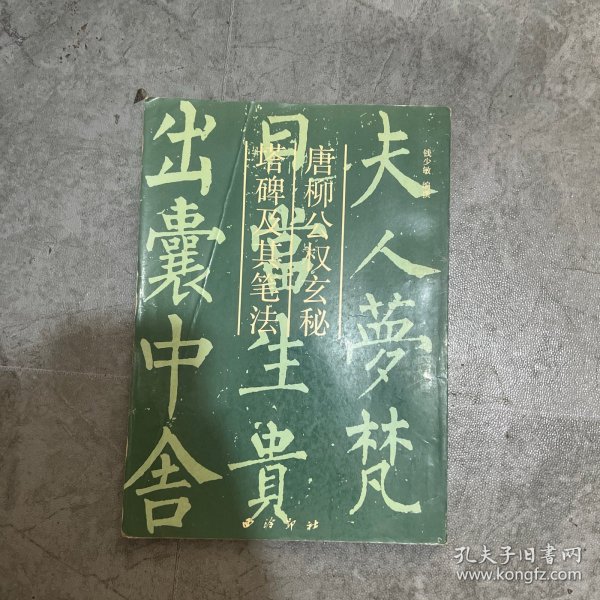 夫人夢梵
日當生貴
出囊中舍
唐柳公权玄秘
塔碑及其笔法
钱少敏 编撰
西泠印社
孔夫子旧书网
www.kongfz.com